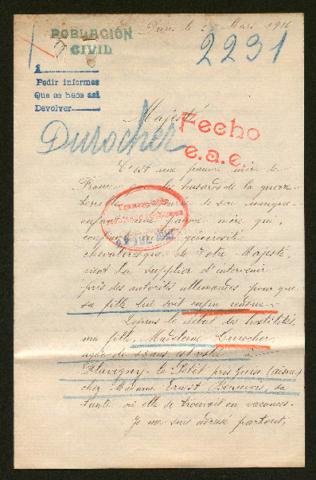 POBLACIÓN
CIVIL
2231
Mars 1916
Pedir informes
Que se hace así
Devolver
Majesté
Durocher
Fecho
e.a.e.
C'est une pauvre mère de
France les hasards de la guerre
de son unique
pauvre mère qui,
chevaleresque de Votre Majesté,
vient la supplier d'intervenir
près des autorités allemandes pour que
sa fille lui soit enfin rendue.
Depuis le début des hostilités,
ma fille, Madeleine Durocher,
âgée de ans est restée à
Flavigny-le-Petit près Guise (Aisne)
chez Madame Ernest sa
tante où elle se trouvait en vacances.
Je me suis adressé partout,